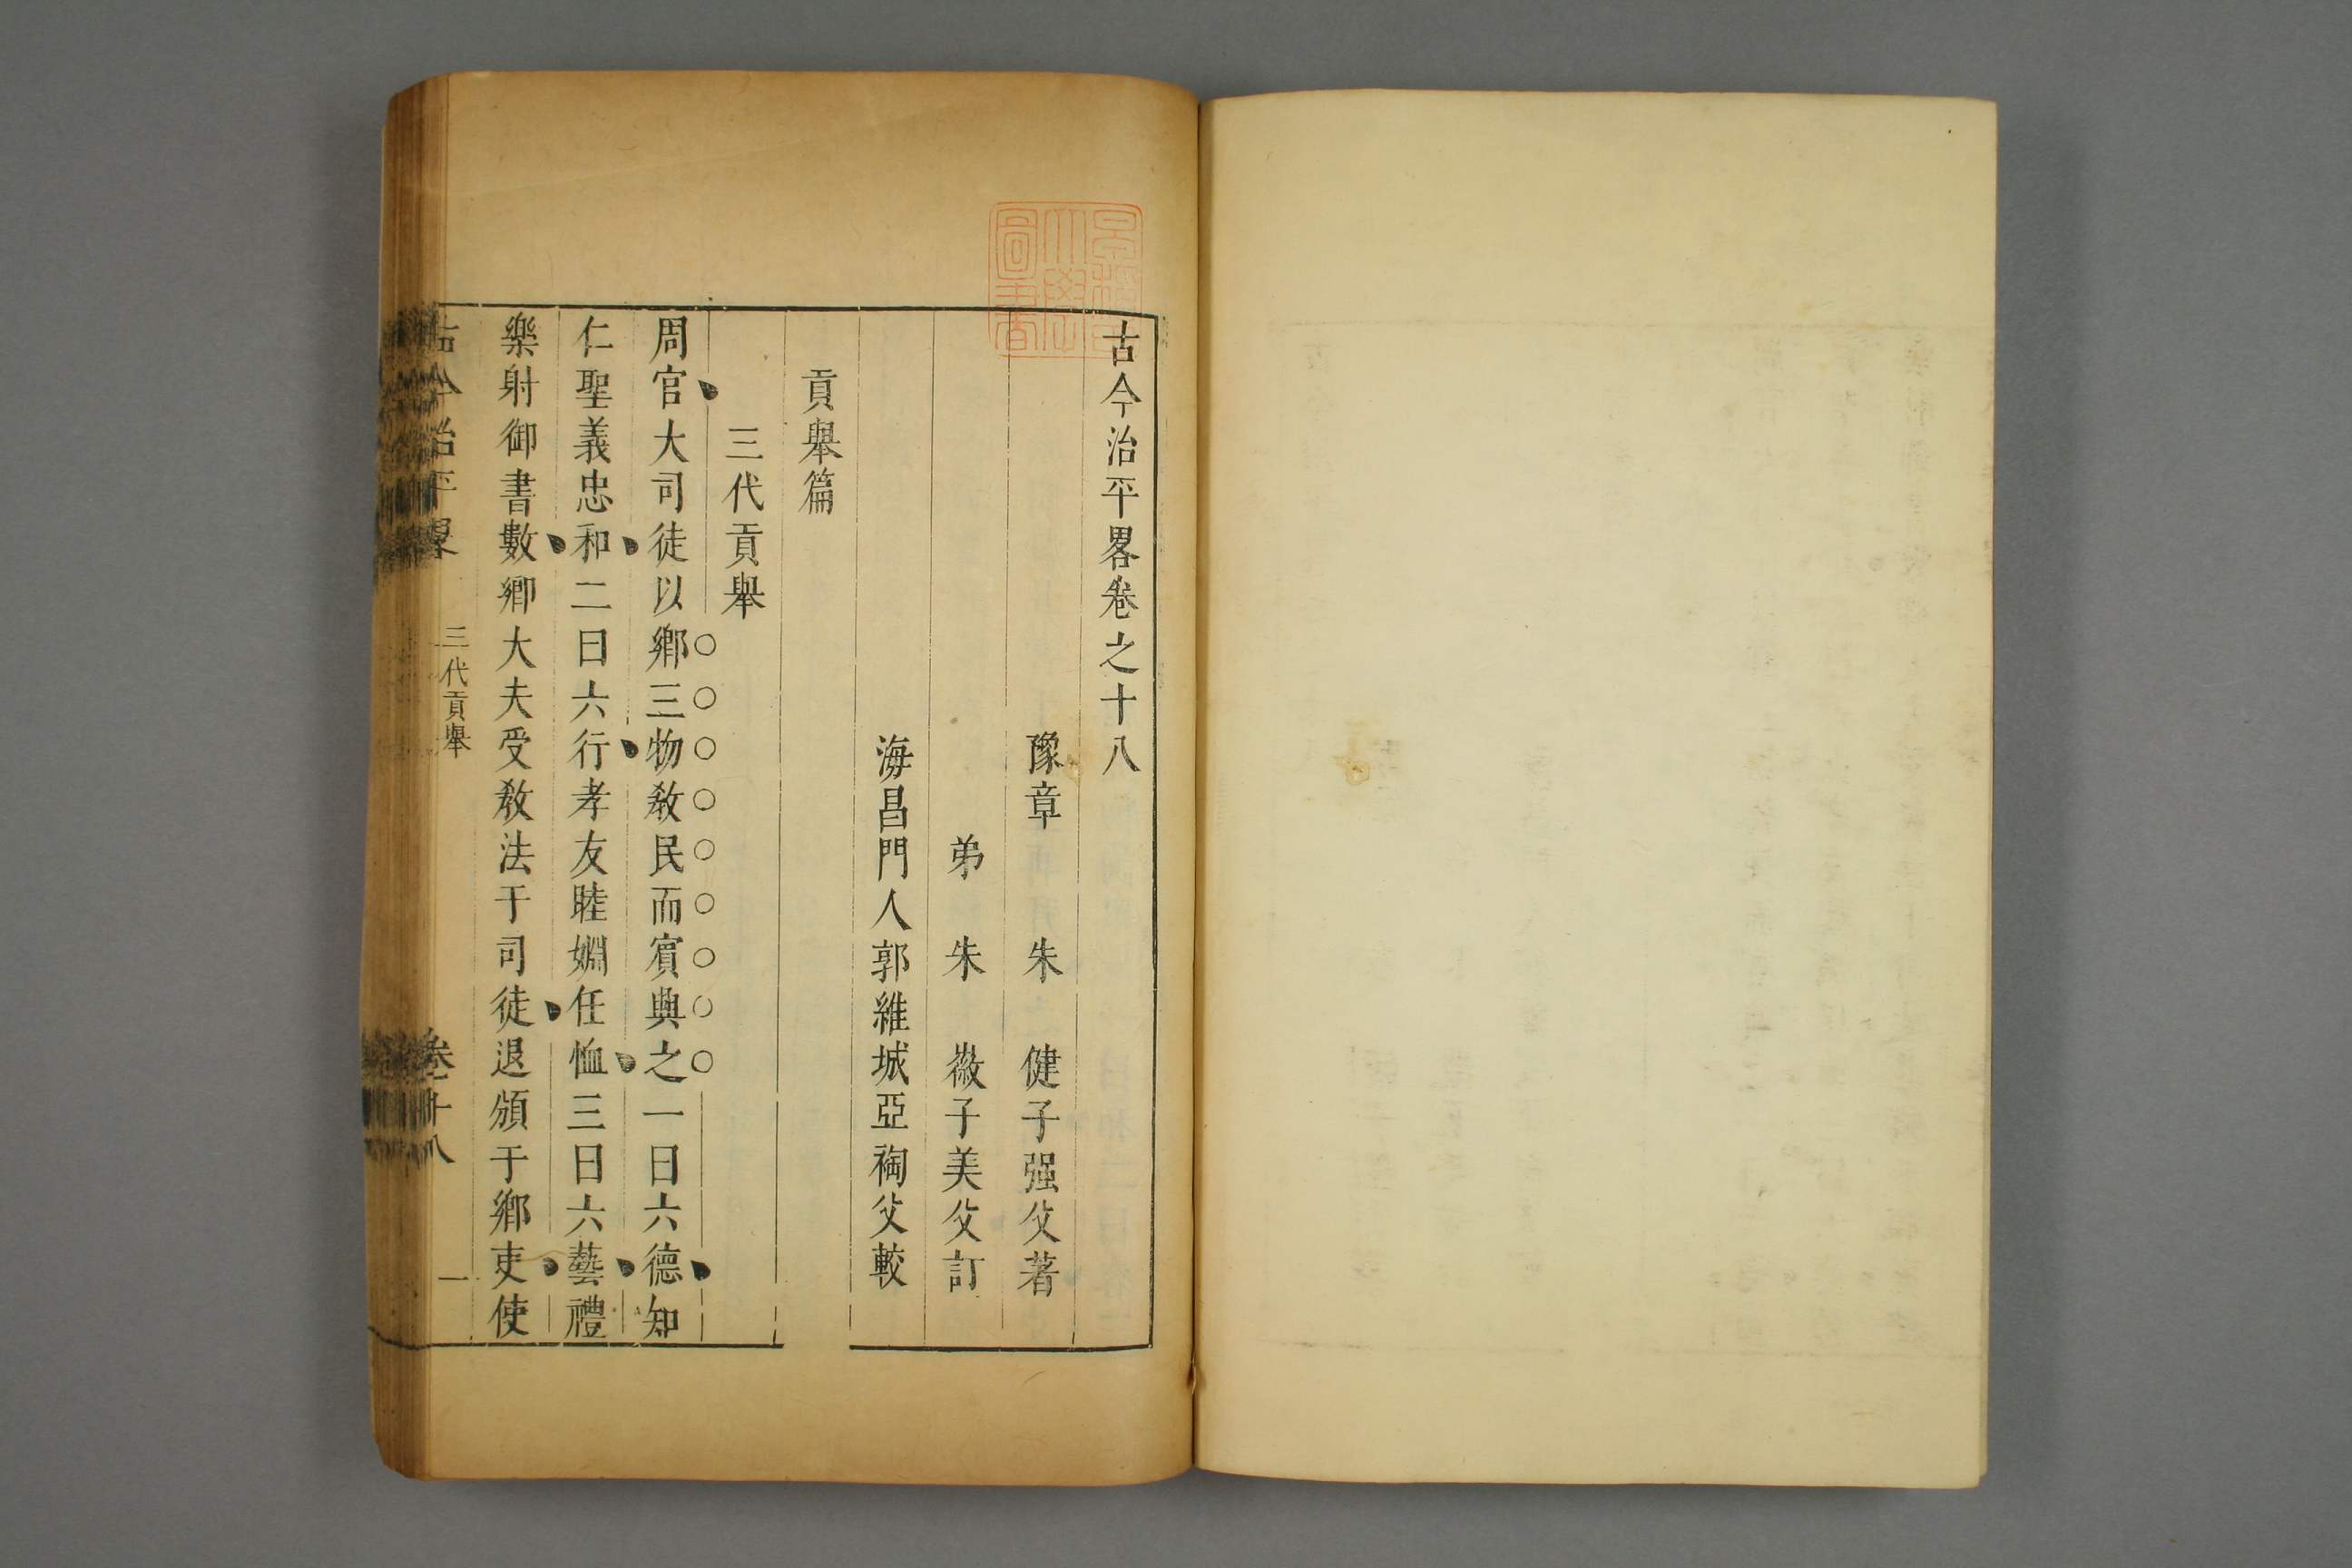 古今治平畧卷之十八
豫章朱健子强父著
弟朱薇子美父訂
海昌門人郭維城亞裪父較
貢舉篇
三代貢舉
周官大司徒以鄉三物敎民而賓興之一曰六德知
仁聖義忠和二曰六行孝友睦婣任恤三曰六藝禮
樂射御書數鄉大夫受敎法于司徒退頒于鄉吏使
古今治平畧 三代貢舉 卷十八 一